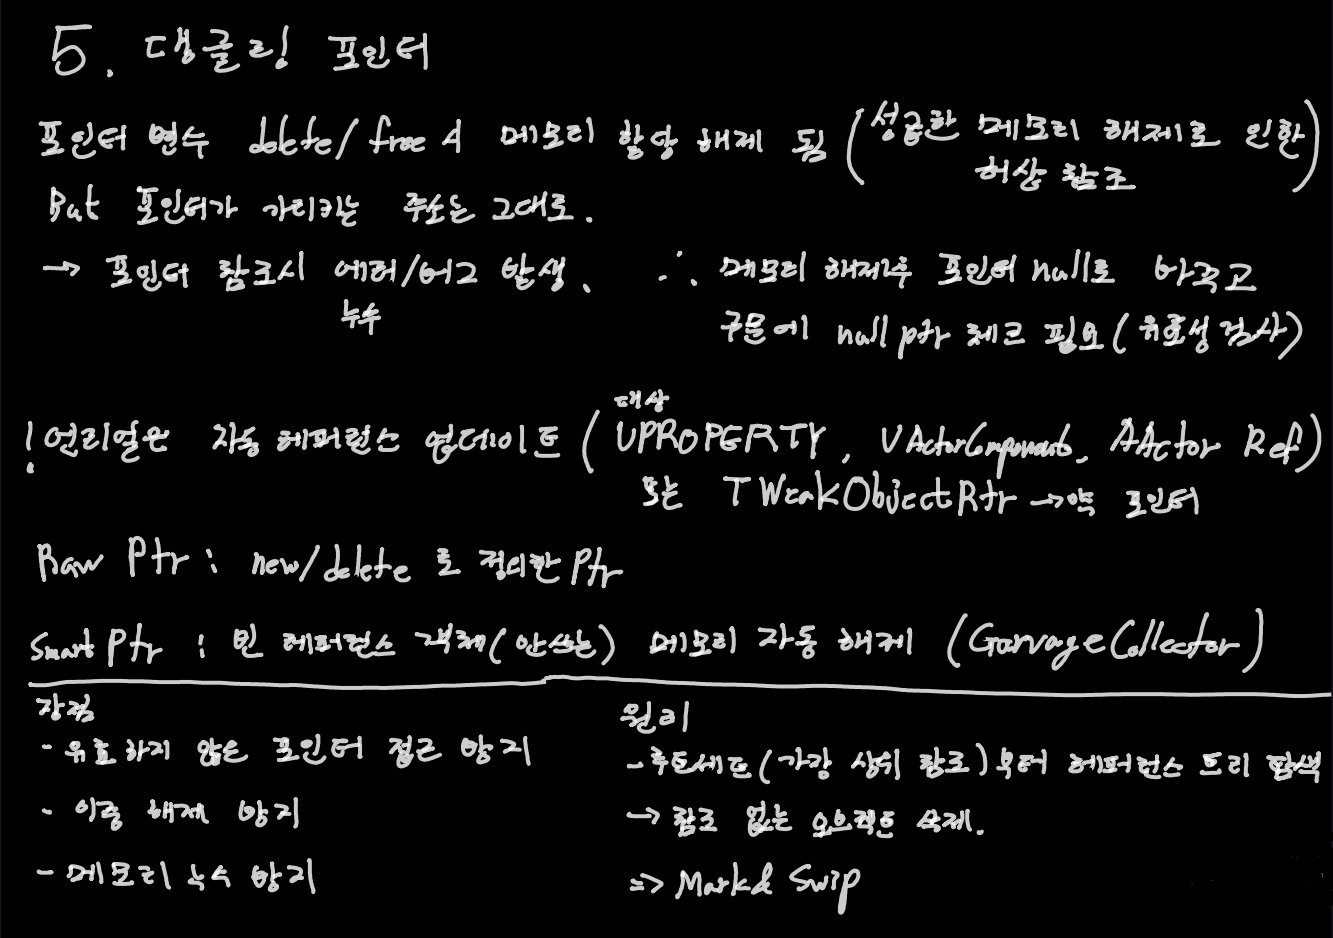 5. 댕글링 포인터
포인터 변수 delete/free시 메모리 할당 해제 됨 (성급한 메모리 해제로 인한
허상 참조)
But 포인터가 가리키는 주소는 그대로.
→ 포인터 참조시 에러/버그 발생.
누수
∴ 메모리 해제후 포인터 null로 바꾸고
구문에 null ptr 체크 필요 (유효성 검사)
! 언리얼은 자동 레퍼런스 업데이트 (UPROPERTY, UActorComponent, AActor Ref)
대상
또는 TWeakObjectPtr → 약 포인터
Raw Ptr : new/delete 로 정의한 Ptr
Smart Ptr : 빈 레퍼런스 객체(안쓰는) 메모리 자동 해제 (GarvageCollector)
장점
- 유효하지 않은 포인터 접근 방지
- 이중 해제 방지
- 메모리 누수 방지
원리
- 루트세트(가장 상위 참조)부터 레퍼런스 트리 탐색
→ 참조 없는 오브젝트 삭제.
=> Mark & Swip